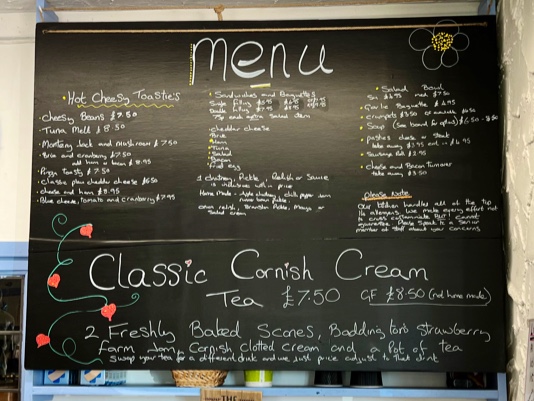 menu
Hot Cheesy Toasties
Cheesy Beans £7.50
Tuna Melt £8.50
and mushroom £7.50
Brie and cranberry £7.50
add ham or bacon £8.95
Pizza Toasty £7.50
Classic plain cheddar cheese £6.50
cheese and ham £8.95
Blue cheese, tomato and cranberry £7.95
Sandwiches and Baguettes
Single filling
Double filling
extra Salad item
cheddar cheese
Brie
Ham
Tuna
Salad
Bacon
fried egg
1 chutney, Pickle, Relish or Sauce
is inclusive with price
Home Made - Apple chutney, chilli pepper jam
onion relish, Branston Pickle, Mayo or
Salad cream
Salad Bowl
Garlic Baguette £4.95
crumpets £3.50
Soup
pasties cheese or steak
take away £3.95
Sausage Roll £2.95
cheese and Bacon Turnover
take away £3.50
please note
Our kitchen handles all of the top
14 allergens. We make every effort not
to cross contaminate BUT cannot
guarantee. Please speak to a Senior
member of staff about your concerns
Classic Cornish Cream
Tea £7.50 GF £8.50 (not home made)
2 Freshly Baked Scones, Boddingtons Strawberry
farm Jam, Cornish clotted cream and a pot of tea
Swap your tea for a different drink and we just price adjust to that drink
THE